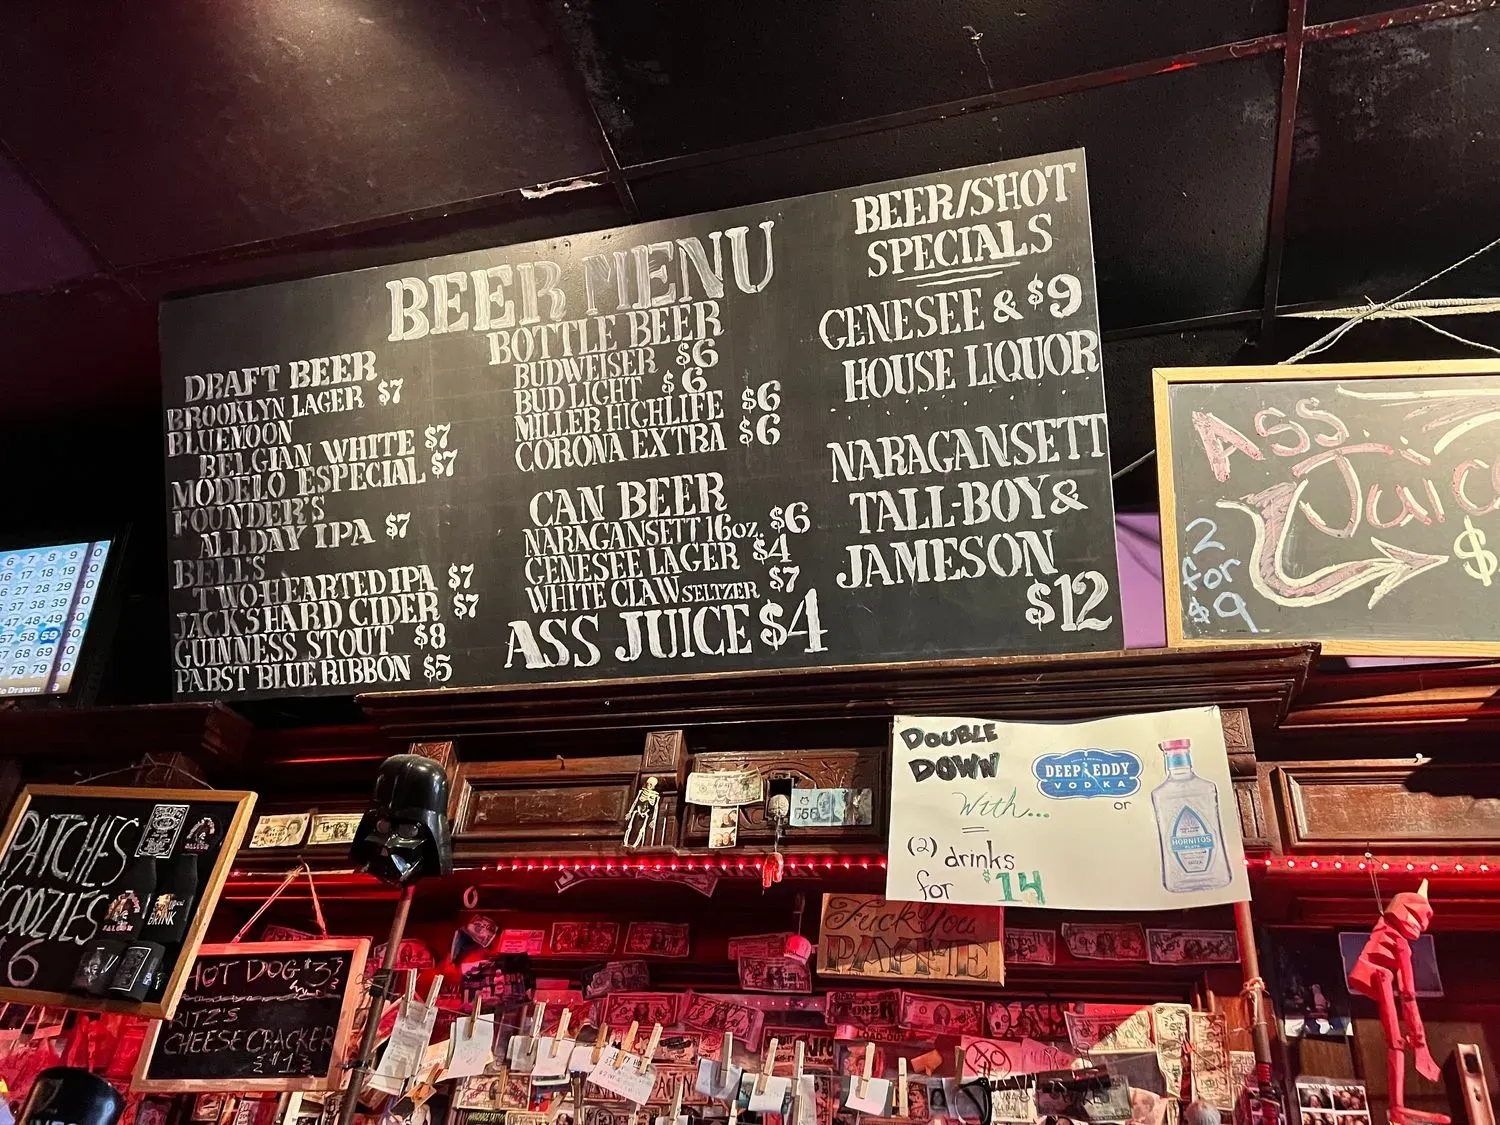 BEER MENU
DRAFT BEER
BROOKLYN LAGER $7
BLUEMOON
BELGIAN WHITE $7
MODELO ESPECIAL $7
FOUNDER'S
ALL DAY IPA $7
BELL'S
TWO-HEARTED IPA $7
JACK'S HARD CIDER $7
GUINNESS STOUT $8
PABST BLUE RIBBON $5
BOTTLE BEER
BUDWEISER $6
BUD LIGHT $6
MILLER HIGHLIFE $6
CORONA EXTRA $6
CAN BEER
NARAGANSETT 16oz. $6
GENESEE LAGER $4
WHITE CLAW SELTZER $7
ASS JUICE $4
BEER/SHOT
SPECIALS
GENESEE & $9
HOUSE LIQUOR
NARAGANSETT
TALL-BOY &
JAMESON
$12
ASS
Juice
2
for
$9
$
6 7 8 9 10
16 17 18 19 20
27 28 29 30
37 38 39 40
47 48 49 50
57 58 59 60
67 68 69 70
78 79 80
Drawn:
DOUBLE
DOWN
With...
(2) drinks
for $14
DEEP EDDY
VODKA
or
HORNITOS
PLATA
PATCHES
COOZIES
$6
DRINK
SALOON
HOT DOG $3!
RITZ'S
CHEESE CRACKER
$1
Fuck You
PAY ME